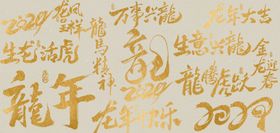 2024
龙凤呈祥
生龙活虎
龍年
龍馬精神
万事兴龍
龍
2024
龙年快乐
龙年大吉
生意兴龍
金龙迎春
龍腾虎跃
2024